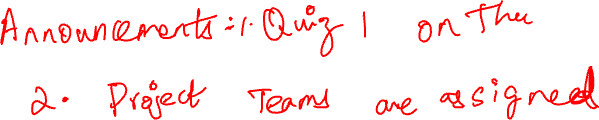 Announcements: 1. Quiz 1 on Thu
2. Project Teams are assigned